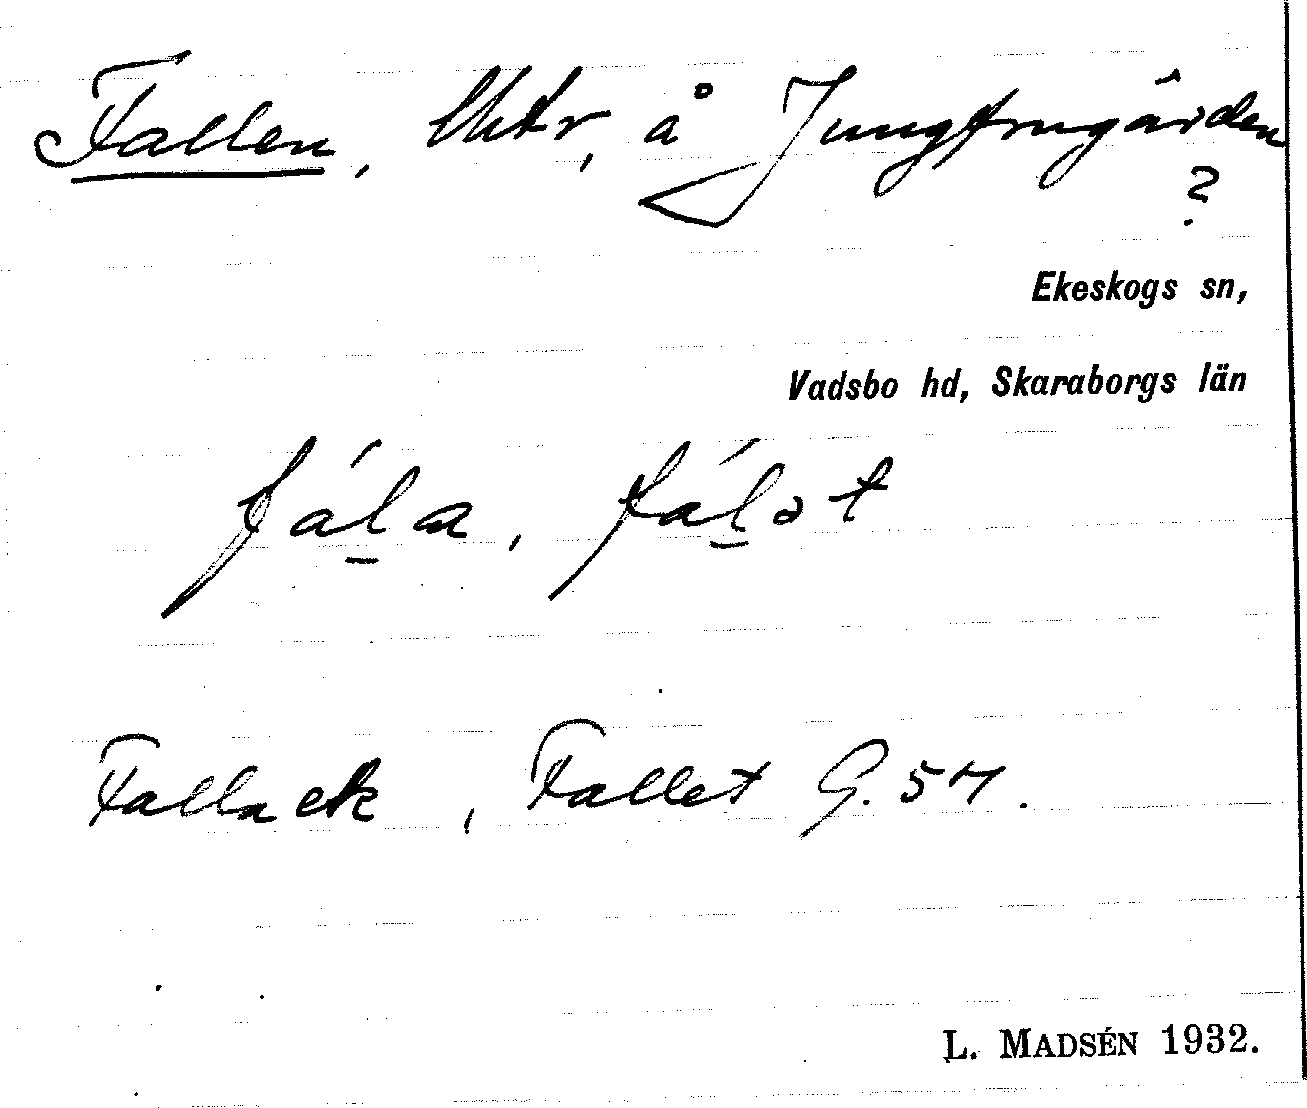 Fallen, lltr, å Jungfrugården
?
Ekeskogs sn,
Vadsbo hd, Skaraborgs län
fáḻa, fáḻət
Fallaek, Fallet G. 57.
L. MADSÉN 1932.